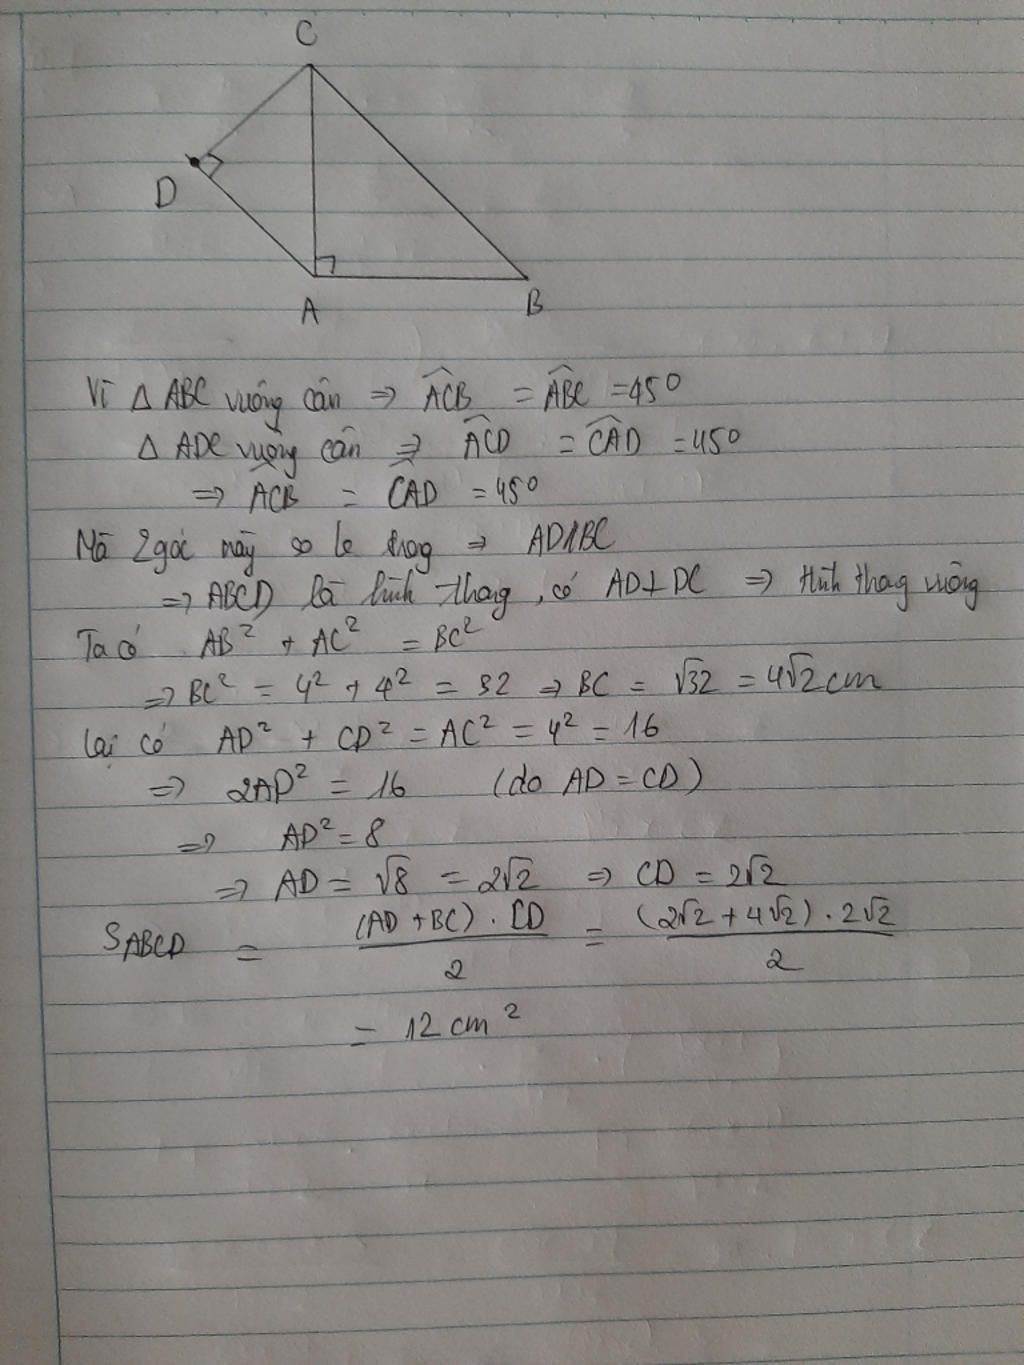 C
D
A
B
Vì Δ ABC vuông cân ⇒ \widehat{ACB} = \widehat{ABC} = 45°
Δ ADC vuông cân ⇒ \widehat{ACD} = \widehat{CAD} = 45°
⇒ \widehat{ACB} = \widehat{CAD} = 45°
Mà 2 góc này so le trong ⇒ AD//BC
⇒ ABCD là hình thang, có AD⊥DC ⇒ Hình thang vuông
Ta có AB² + AC² = BC²
⇒ BC² = 4² + 4² = 32 ⇒ BC = √32 = 4√2 cm
Lại có AD² + CD² = AC² = 4² = 16
⇒ 2AD² = 16 (do AD = CD)
⇒ AD² = 8
⇒ AD = √8 = 2√2 ⇒ CD = 2√2
S_{ABCD} = \frac{(AD + BC) . CD}{2} = \frac{(2√2 + 4√2) . 2√2}{2}
= 12 cm²